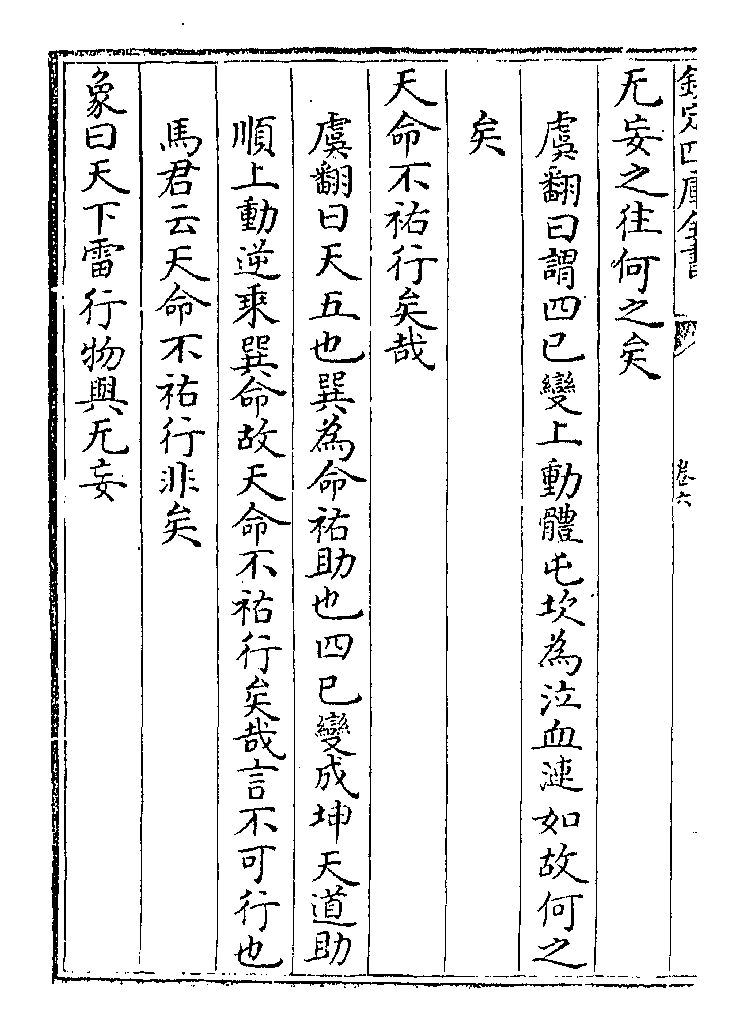 欽定四庫全書
卷六
无妄之往何之矣
虞翻曰謂四已變上動體屯坎為泣血漣如故何之
矣
天命不祐行矣哉
虞翻曰天五也巽為命祐助也四已變成坤天道助
順上動逆乘巽命故天命不祐行矣哉言不可行也
馬君云天命不祐行非矣
象曰天下雷行物與无妄